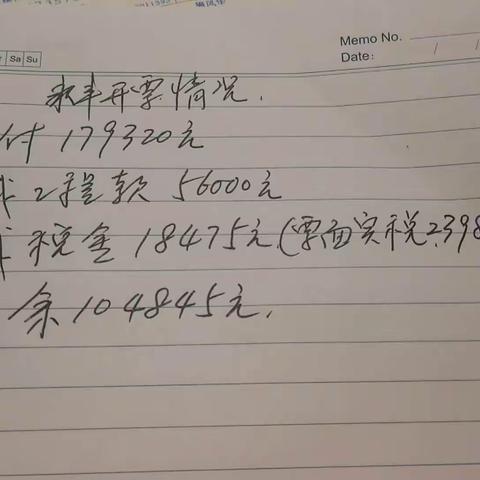 Memo No.
Date: / /
Sa Su
开票情况.
付 179320元
工程款 56000元
税金 18475元(票面实税2398
余 104845元.